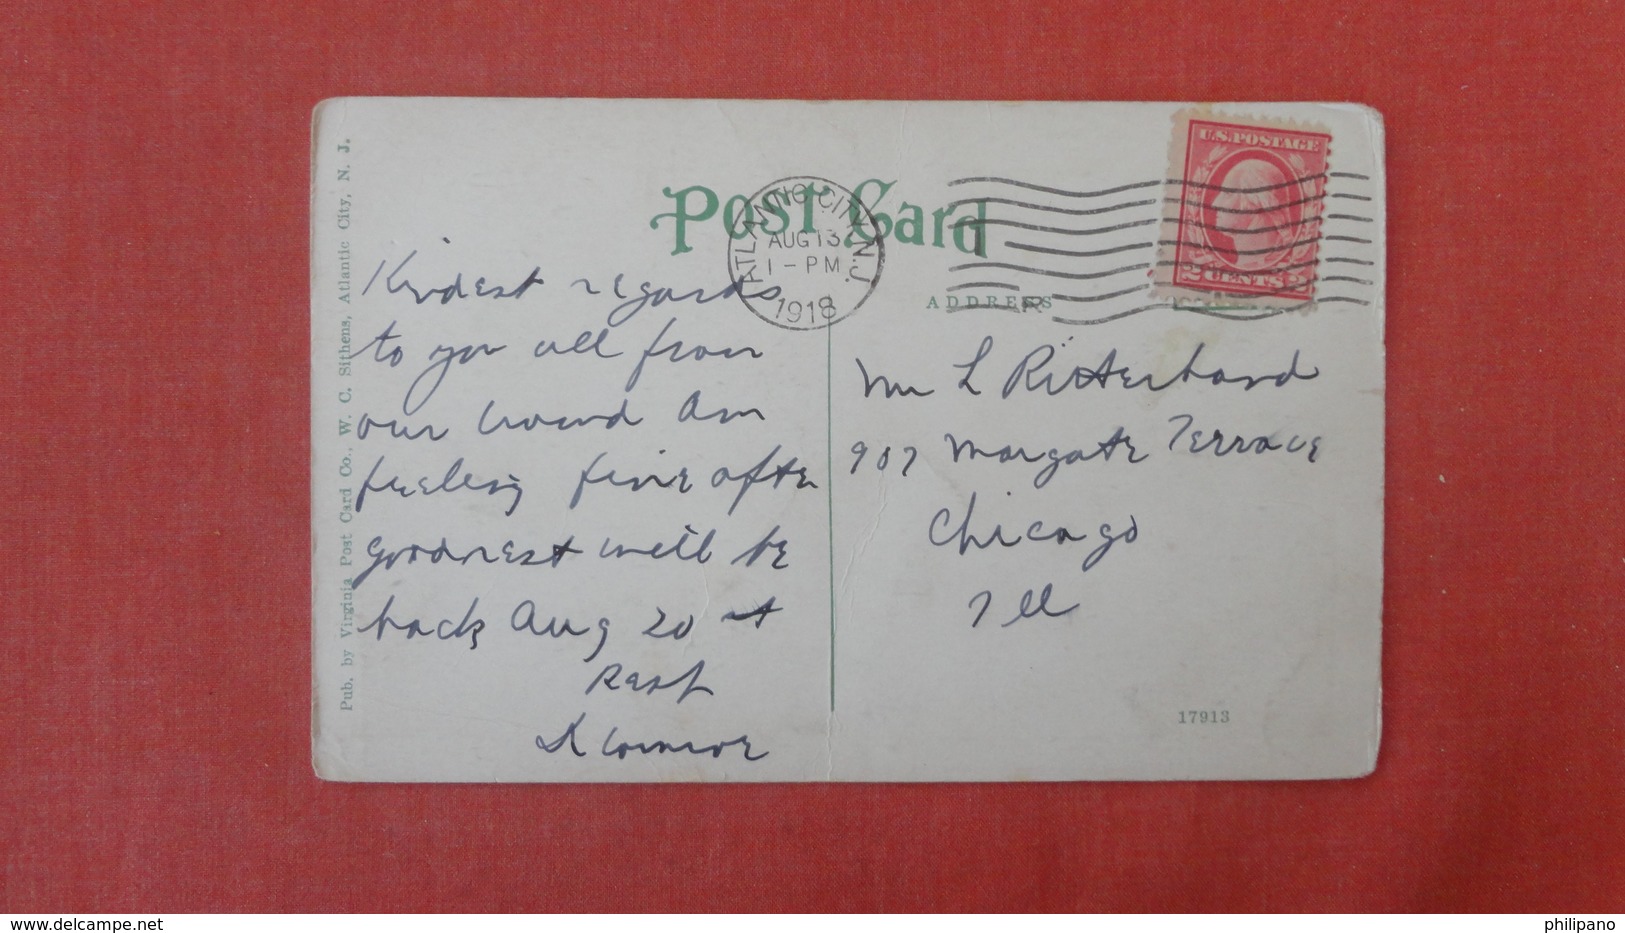 Pub. by Virginia Post Card Co., W. C. Sithens, Atlantic City, N. J.
Post Card
ATLANTIC CITY, N.J.
AUG 13
1-PM
1918
U.S. POSTAGE
2 CENTS 2
ADDRESS
R
Kindest regards
to you all from
our crowd Am
feeling fine
goodness will be
back Aug 20
Mr L Ritterband
907 Margate Terrace
Chicago
Ill
17913
delcampe.net
philipano